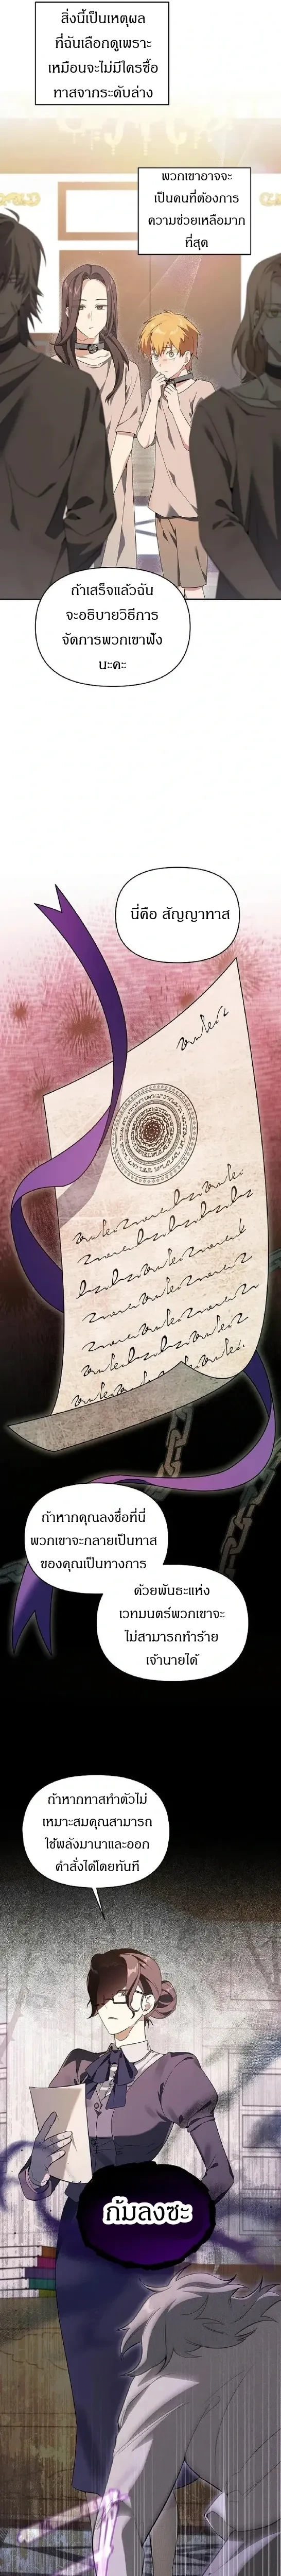 สิ่งนี้เป็นเหตุผล
ที่ฉันเลือกดูเพราะ
เหมือนจะไม่มีใครซื้อ
ทาสจากระดับล่าง
พวกเขาอาจจะ
เป็นคนที่ต้องการ
ความช่วยเหลือมาก
ที่สุด
ถ้าเสร็จแล้วฉัน
จะอธิบายวิธีการ
จัดการพวกเขาฟัง
นะคะ
นี่คือ สัญญาทาส
ถ้าหากคุณลงชื่อที่นี่
พวกเขาจะกลายเป็นทาส
ของคุณเป็นทางการ
ด้วยพันธะแห่ง
เวทมนตร์พวกเขาจะ
ไม่สามารถทำร้าย
เจ้านายได้
ถ้าหากทาสทำตัวไม่
เหมาะสมคุณสามารถ
ใช้พลังมานาและออก
คำสั่งได้โดยทันที
ก้มลงซะ